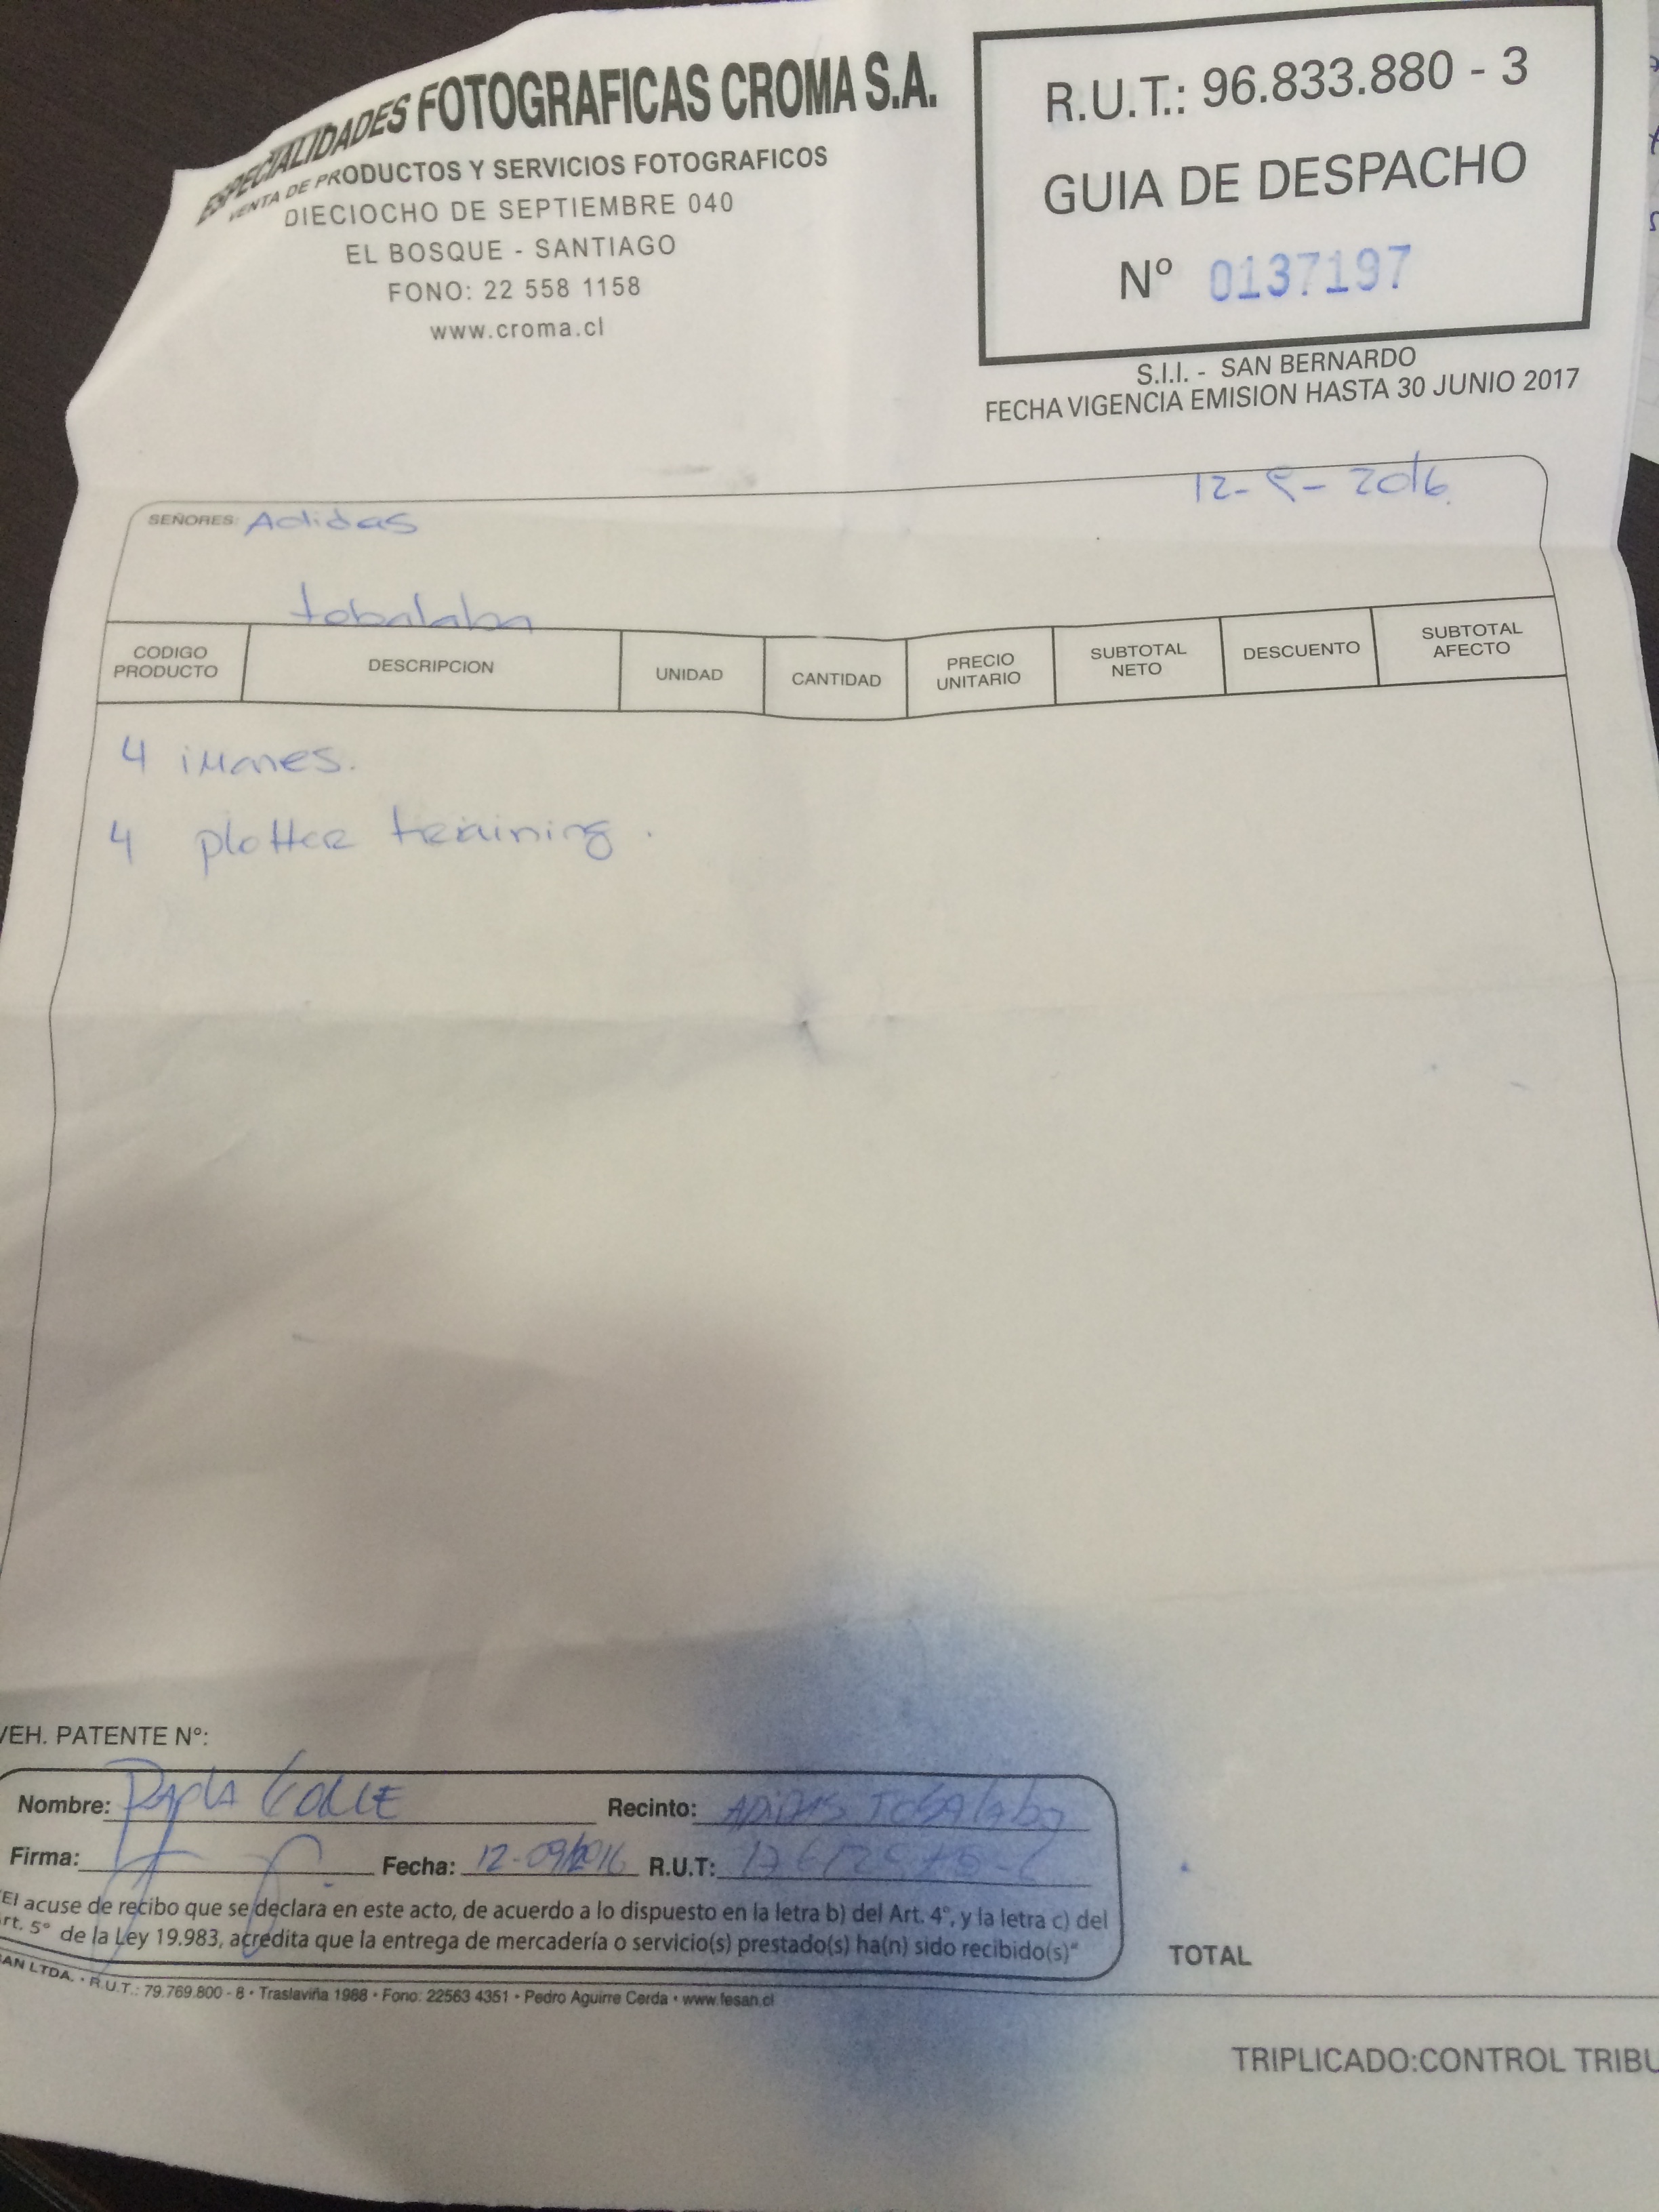 ESPECIALIDADES FOTOGRAFICAS CROMA S.A.
VENTA DE PRODUCTOS Y SERVICIOS FOTOGRAFICOS
DIECIOCHO DE SEPTIEMBRE 040
EL BOSQUE - SANTIAGO
FONO: 22 558 1158
www.croma.cl
R.U.T.: 96.833.880 - 3
GUIA DE DESPACHO
Nº 0137197
S.I.I. - SAN BERNARDO
FECHA VIGENCIA EMISION HASTA 30 JUNIO 2017
12-9-2016
SEÑORES: Adidas
tobalaba
CODIGO PRODUCTO DESCRIPCION UNIDAD CANTIDAD PRECIO UNITARIO SUBTOTAL NETO DESCUENTO SUBTOTAL AFECTO
4 imanes.
4 plotter training.
VEH. PATENTE Nº:
Nombre: Recinto: ADIDAS Tobalaba
Firma: Fecha: 12-09/2016 R.U.T:
El acuse de recibo que se declara en este acto, de acuerdo a lo dispuesto en la letra b) del Art. 4º, y la letra c) del
Art. 5º de la Ley 19.983, acredita que la entrega de mercadería o servicio(s) prestado(s) ha(n) sido recibido(s)"
TOTAL
SAN LTDA. • R.U.T.: 79.769.800 - 8 • Traslaviña 1988 • Fono: 22563 4351 • Pedro Aguirre Cerda • www.fesan.cl
TRIPLICADO:CONTROL TRIBU